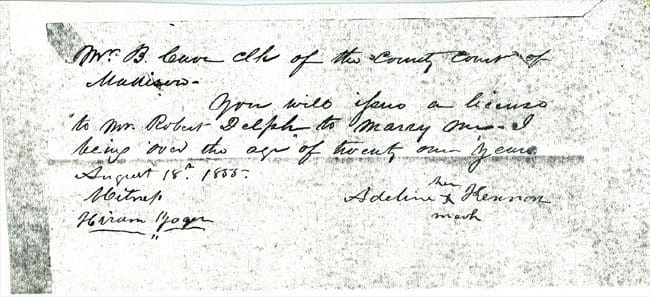 Mr. B. Cave clk of the County Court of
Madison.
You will issue a license
to Mr. Robert Delph to marry me - I
being over the age of twenty one years
August 18th. 1855.
Witness
Hiram Yager
her
Adeline X Kennon
mark